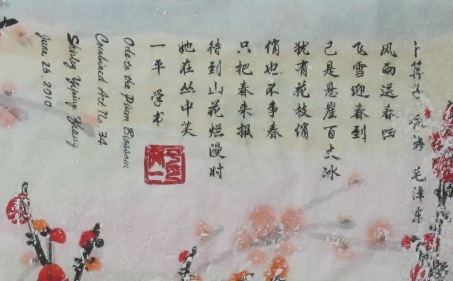 卜算子 咏梅 毛泽东
风雨送春归
飞雪迎春到
已是悬崖百丈冰
犹有花枝俏
俏也不争春
只把春来报
待到山花烂漫时
她在丛中笑
一平 学书
Ode to the Plum Blossom
Combined Art No. 34
Shirley Yiping Zhang
June 26, 2010